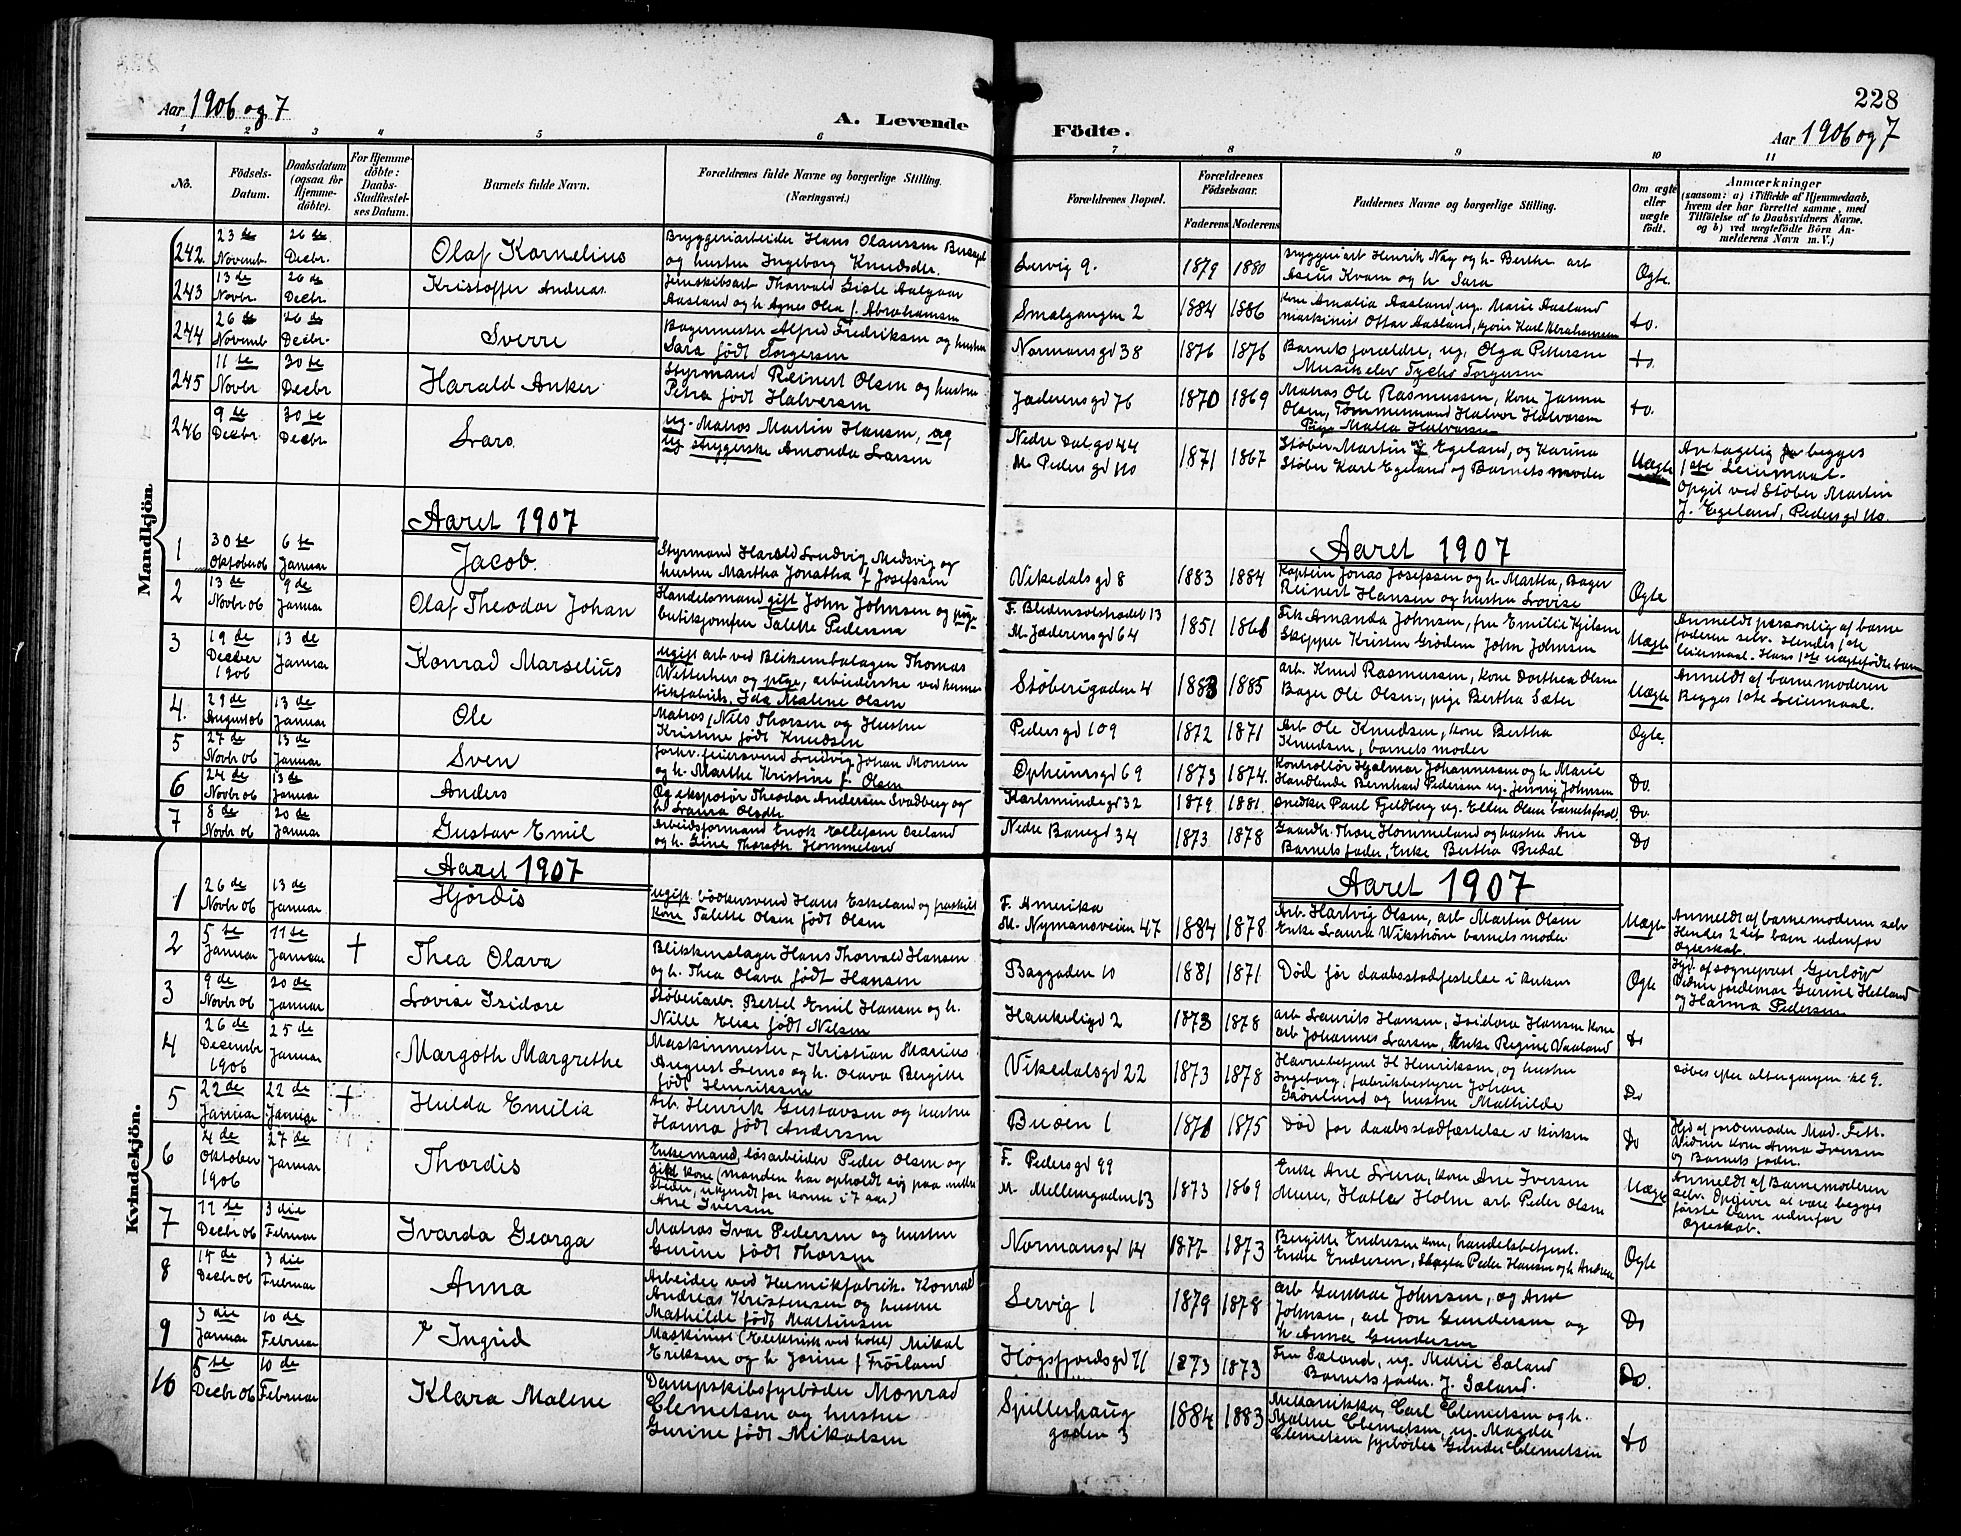 228
Aar 1906 og 7
A. Levende
Födte.
Aar 1906 og 7
1 2 3 4 5 6 7 8 9 10 11
No.
Födsels-
Datum.
Daabsdatum
(ogsaa for
Hjemme-
döbte).
For Hjemme-
döbte:
Daabs-
Stadfæstel-
ses Datum.
Barnets fulde Navn.
Forældrenes fulde Navne og borgerlige Stilling.
(Næringsvei.)
Forældrenes Bopæl.
Forældrenes
Födselsaar.
Faderens Moderens
Faddernes Navne og borgerlige Stilling.
Om ægte
eller
uægte
födt.
Anmærkninger
(saasom: a) i Tilfælde af Hjemmedaab,
hvem der har forrettet samme, med
Tilföielse af to Daabsvidners Navne,
og b) ved uægtefödte Börn An-
melderens Navn m. V.)
Mandkjön
242. 23de Novemb. 26de Decbr. Olaf Kornelius
Bryggeriarbeider Hans Olaussen
og hustru Ingeborg Knudsdtr.
Lervig 9. 1879 1880
Bryggeriarb Henrik Næy og h. Berthe arb
Asius Kvam og h Sara
Ægte.
243 13de Novbr 26de Decbr. Kristoffer Andreas
Jernskibsarb Thorvald Gisle Aalgaar
Aasland og h Agnes Olea f. Abrahamsen
Smalgangen 2 1884 1886
kone Amalia Aasland, ug. Marie Aasland
maskinist Ottar Aasland, Karl Abrahamsen
do.
244 26de Novemb 26de Decbr. Sverre
Bagermester Alfred Fredriksen og hustru
Sara født Torgersen
Normansgd 38 1876 1876
Barnets forældre, ug. Olga Pettersen
Musikelev Tycho Torgersen
do.
245 11te Novbr 30te Decbr Harald Anker
Styrmand Reinert Olsen og hustru
Petra født Halversen
Jæderensgd 76 1870 1869
Matros Ole Rasmussen, kone Janna
Olsen, Tømmermand Halvor Halvorsen
Pige Malla Halvorsen
do.
246 9te Decbr. 30te Decbr. Lars
ug. Matros Martin Hansen, og
ug strygerske Amanda Larsen
Nedre Dalgd 44
M. Pedersgd 110
1871 1867
Støber Martin J Egeland, og Karina
Støber Karl Egeland og Barnets moder
Uægte
Antagelig for begges
1ste Leiermaal.
Opgit ved Støber Martin
J. Egeland, Pedersgd 110.
Aaret 1907
Aaret 1907
1 30te Oktober 06 6te Januar Jacob.
Styrmand Harald Ludvig Medsvig og
hustru Martha Jonatha f Josefssen
Vikedalsgd 8 1883 1884
Kaptein Jonas Josefssen og h. Martha, Bager
Reinert Hansen og hustru Lovise
Ægte
2 13de Novbr 06 9de Januar Olaf Theodor Johan
Handelsmand gift John Johnsen og pige
butikjomfru Talette Pedersen
F. Bledensolstradet 13
M. Jæderensgd 64
1851 1861
Frk Amanda Johnsen, fru Emilie Kjelsen
Skipper Kristen Grødem John Johnsen
Uægte
Anmeldt personlig af barne
faderen selv. Hendes 1ste
leiermaal. Hans 1ste uægtefødte barn
3 19de Decber 1906 13de Januar Konrad Marselius
ugift arb ved Blikemballagen Thomas
Wetterhus og pige, arbeiderske ved herme-
tikfabrik, Ida Malene Olsen
Støberigaden 4 1883 1885
arb. Knud Rasmussen, kone Dorthea Olsen
Bager Ole Olsen, pige Bertha Sæter
Uægte
Anmeldt af barnemoderen
Begges 1ste Leiermaal.
4. 29de August 06 13de Januar Ole
Matros, Nils Thorsen og Hustru
Kristine født Knudsen
Pedersgd 109 1872 1871
Arb Ole Knudsen, kone Bertha
Knudsen, barnets moder
Ægte.
5 27de Novbr 06 13de Januar Sven
forhv. feiersvend Ludvig Johan Monsen
og h. Marthe Kristine f. Olsen
Opheimsgd 69 1873 1874.
Kontrollør Hjalmar Johannessen og h. Marie
Handlende Bernhard Pedersen ug. Jenny Johnsen
Do.
6 24de Novbr 06 13de Januar Anders
Og ekspotør Theodor Andersen Svadberg og
h. Laura Olsdtr
Karlsmindegd 32 1879 1881.
Snedker Paul Fjeldberg ug. Ellen Olsen barnetsforæl.
Do.
7 8de Novbr 06 20de Januar Gustav Emil
Arbeidsformand Enok Ellefsen Oseland
og h. Line Thorsdtr Hommeland
Nedre Banegd 34 1873 1878
Gaardbr. Thore Hommeland og hustru Ane
Barnets fader, Enke Bertha Bredal
Do
Kvindekjön.
Aaret 1907
Aaret 1907
1 26de Novbr 06 13de Januar Hjørdis
ugift bødkersvend Hans Eskeland og fraskilt
kone Talette Olsen født Olsen
F. Amerika
M. Nymansveien 47
1884 1878
Arb. Hartvig Olsen, arb Martin Olsen
Enke Laura Wikstrøm barnets moder
Uægte
Anmeldt af barnemoderen selv
Hendes 2det barn udenfor
Ægteskab.
2 5te Januar 11te Januar + Thea Olava
Blikkenslager Hans Thorvald Hansen
og h. Thea Olava født Hansen
Baggaden 10 1881 1871
Død før daabsstadfestelse i kirken
Ægte
Hjd. af sogneprest Gjerløw
Vidner jordemor Gurine Hetland
og Hanna Pedersen
3 9de Novbr 06 20de Januar Lovise Isidore
Støberiarb. Bertel Emil Hansen og h.
Nille Elise født Nilsen
Haukeligd 2 1873 1878
arb Laurits Hansen, Isidora Hansen kone
arb Johannes Larsen, Enke Regine Vaaland
do
4 26de Decembr 1906 25de Januar Margoth Margrethe
Maskinmester Kristian Marius
August Lems og h. Olava Bergitte
født Henriksen
Vikedalsgd 22 1873 1878
Havnebetjent H Henriksen, og hustru
Ingeborg, fabrikbestyrer Johan
Grønlund og hustru Mathilde
Do
Døbes efter altergangen kl 9.
5 22de Januar 22de Januar + Hulda Emilie
Arb. Henrik Gustavsen og hustru
Hanna født Andersen
Buøen 1 1871 1875
Død før daabsstadfæstelse i kirken
Do
Hjd af jordemoder Mad. Fett.
Vidner kone Anna Iversen
og Barnets fader.
6 4de Oktober 1906 27de Januar Thordis
Enkemand, løsarbeider Peder Olsen og
gift kone (manden har opholdt sig paa andre
steder, ukjendt for konen i 7 aar)
Ane Iversen
F. Pedersgd 99
M. Mellemgaden 13
1873 1869
Enke Ane Lura, kone Ane Iversen
Mure, Hatle Holm arb Peder Olsen
Uægte
Anmeldt af Barnemoderen
selv. Opgiver at være begges
første barn udenfor
Ægteskab.
7 11te Decbr 06 3die Februar Ivarda Georga
Matros Ivar Pedersen og hustru
Gurine født Thorsen
Normansgd 14 1877 1873
Bergitte Endresen kone, handelsbetjent.
Endre Endresen, Slagter Peder Hansen og h. Andrea
Ægte
8 15de Decbr 06 3die Februar Anna
Arbeider ved Hermetikfabrik. Konrad
Andreas Kristensen og hustru
Mathilde født Martinsen
Lervig 1 1879 1878
arb Gunnar Johnsen, og Ane
Johnsen, arb Jon Gundersen og
h Anna Gundersen
Do
9 3die Januar 10de Februar Ingrid
Maskinist (Elektrisk ved hotel) Mikal
Eriksen og h Jorine f Frøiland
Høgsfjordsgd 71 1873 1873
Fru Sæland, ug. Marie Sæland
Barnets fader. J. Sæland.
Do.
10 5te Decbr 06 10de Februar Klara Malene
Dampskibsfyrbøder Monrad
Clemetsen og hustru
Gurine født Mikalsen
Spillerhaug
gaden 3
1884 1883
Mekaniker, Carl Clemetsen og h.
Malene Clemetsen, ug. Magda
Clemetsen fyrbøder Gunder Clemetsen
do